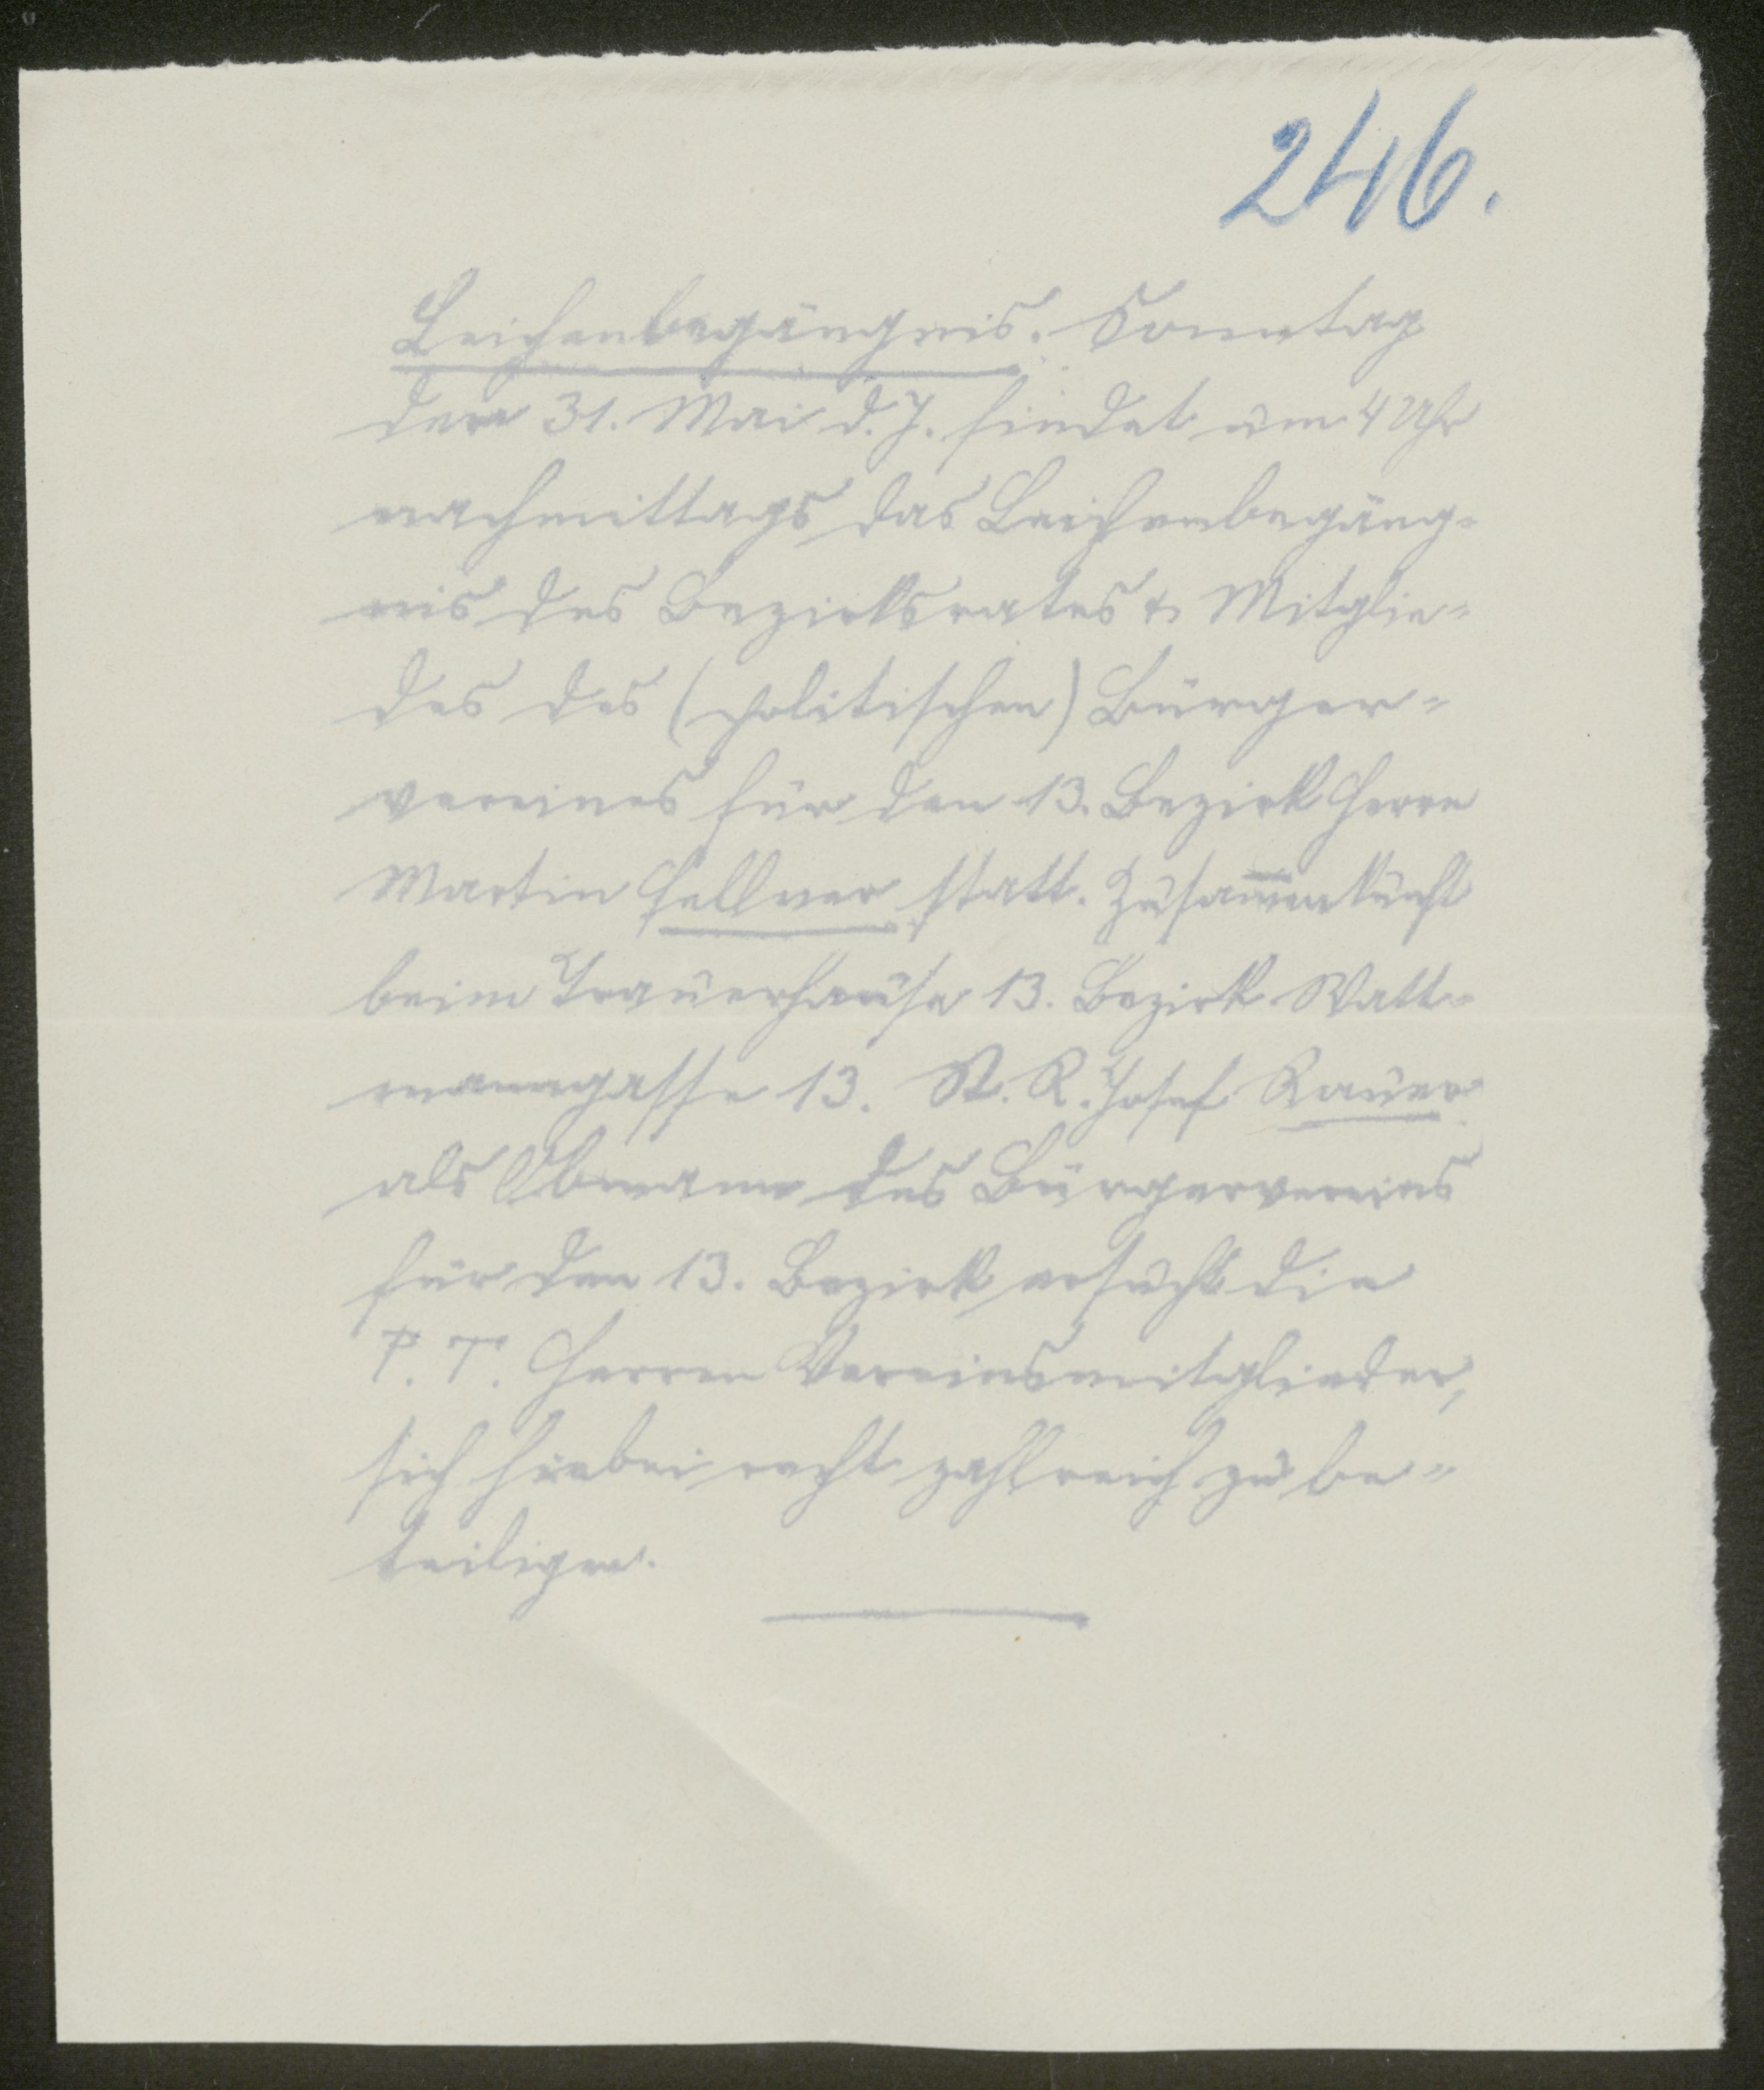 246.
Leichenbegängnis. Sonntag
den 31. Mai d. J. findet um 4 Uhr
nachmittags das Leichenbegäng-
nis des Bezirksrates & Mitglie-
des des (politischen) Bürger-
vereines für den 13. Bezirk Herrn
Martin Fellner statt. Zusammenkunft
beim Trauerhause 13. Bezirk Watt-
manngasse 13. St. R. Josef Rauer
als Obmann des Bürgervereins
für den 13. Bezirk ersucht die
P. T. Herren Vereinsmitglieder,
sich hiebei recht zahlreich zu be-
teiligen.